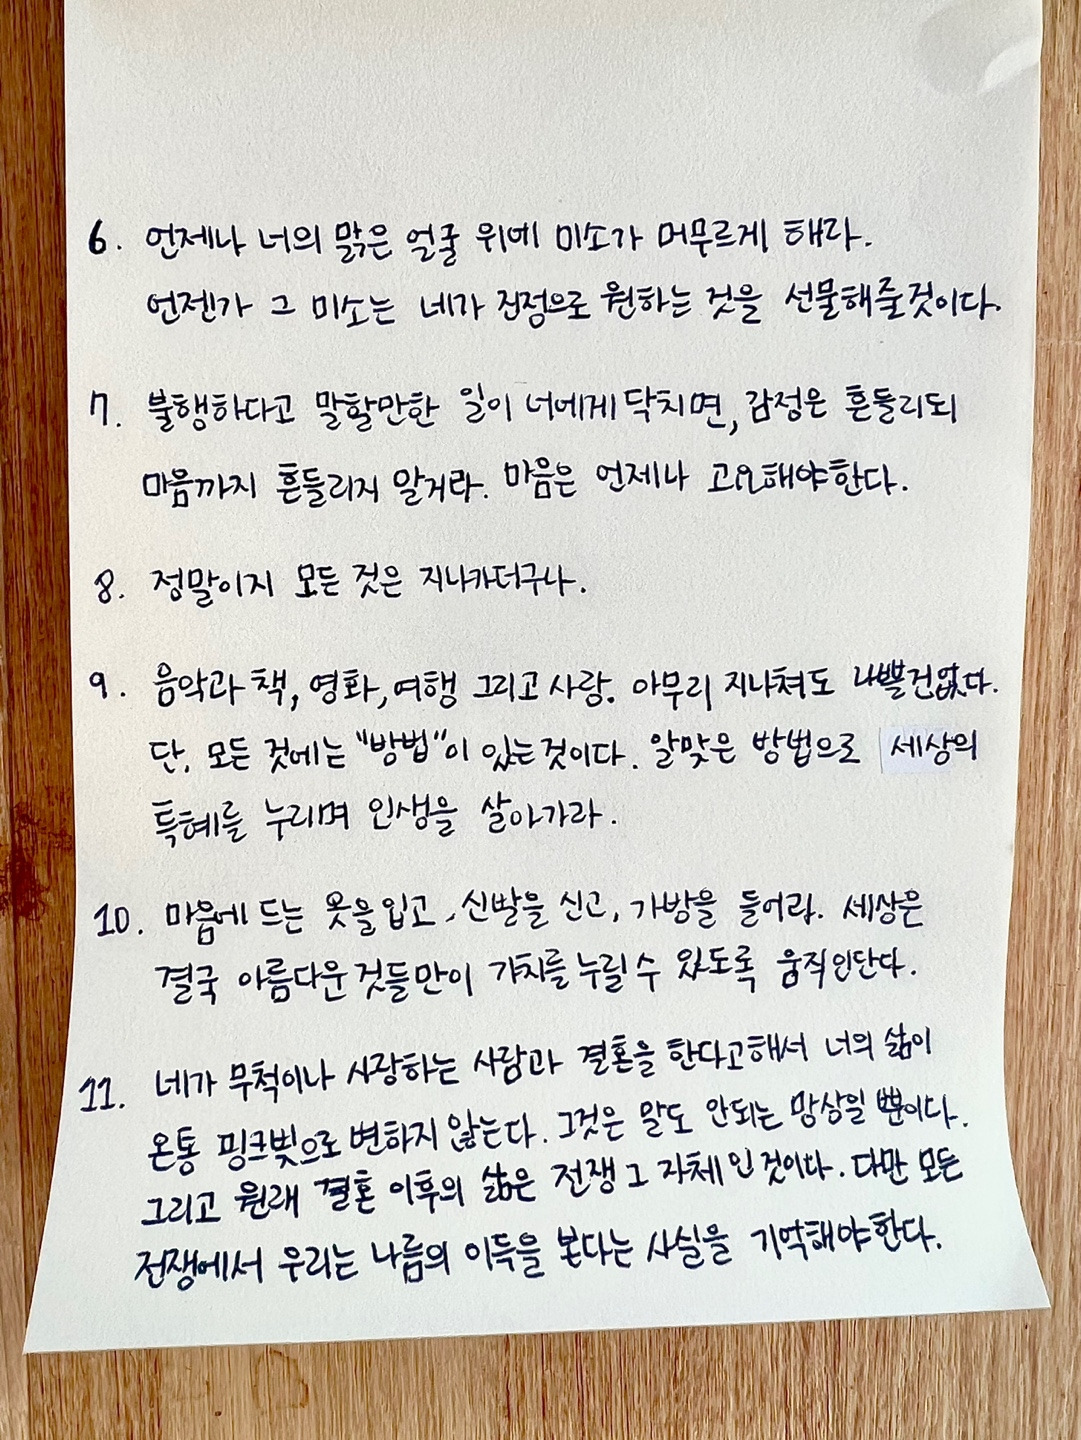 6. 언제나 너의 맑은 얼굴 위에 미소가 머무르게 해라.
언젠가 그 미소는 네가 진정으로 원하는 것을 선물해줄것이다.
7. 불행하다고 말할만한 일이 너에게 닥치면, 감정은 흔들리되
마음까지 흔들리지 말거라. 마음은 언제나 고요해야한다.
8. 정말이지 모든 것은 지나가더구나.
9. 음악과 책, 영화, 여행 그리고 사랑. 아무리 지나쳐도 나쁠건없다.
단, 모든 것에는 "방법"이 있는것이다. 알맞은 방법으로 세상의
특혜를 누리며 인생을 살아가라.
10. 마음에 드는 옷을입고, 신발을 신고, 가방을 들어라. 세상은
결국 아름다운것들만이 가치를 누릴 수 있도록 움직인단다.
11. 네가 무척이나 사랑하는 사람과 결혼을 한다고해서 너의 삶이
온통 핑크빛으로 변하지 않는다. 그것은 말도 안되는 망상일 뿐이다.
그리고 원래 결혼 이후의 삶은 전쟁 그 자체인것이다. 다만 모든
전쟁에서 우리는 나름의 이득을 본다는 사실을 기억해야한다.